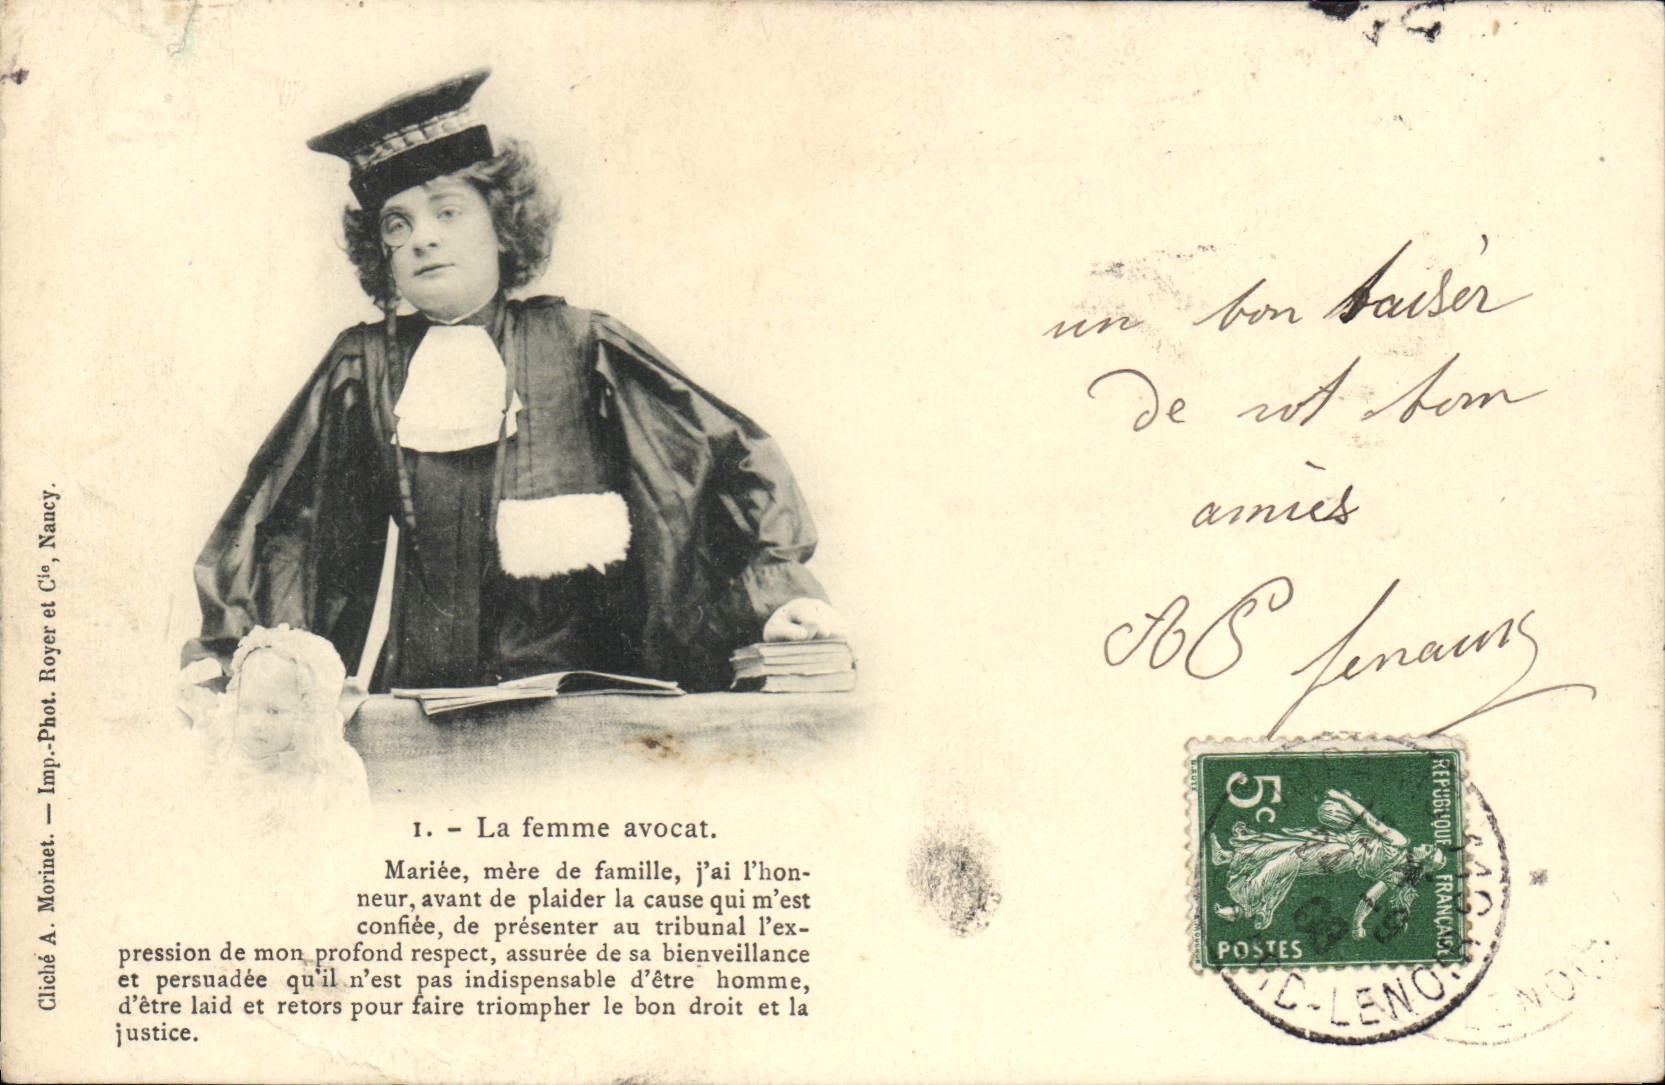 Cliché A. Morinet. — Imp.-Phot. Royer et Cie, Nancy.
1. – La femme avocat.
Mariée, mère de famille, j'ai l'hon-
neur, avant de plaider la cause qui m'est
confiée, de présenter au tribunal l'ex-
pression de mon profond respect, assurée de sa bienveillance
et persuadée qu'il n'est pas indispensable d'être homme,
d'être laid et retors pour faire triompher le bon droit et la
justice.
un bon baisér
De
amiès
5c
REPUBLIQUE FRANCAISE
POSTES